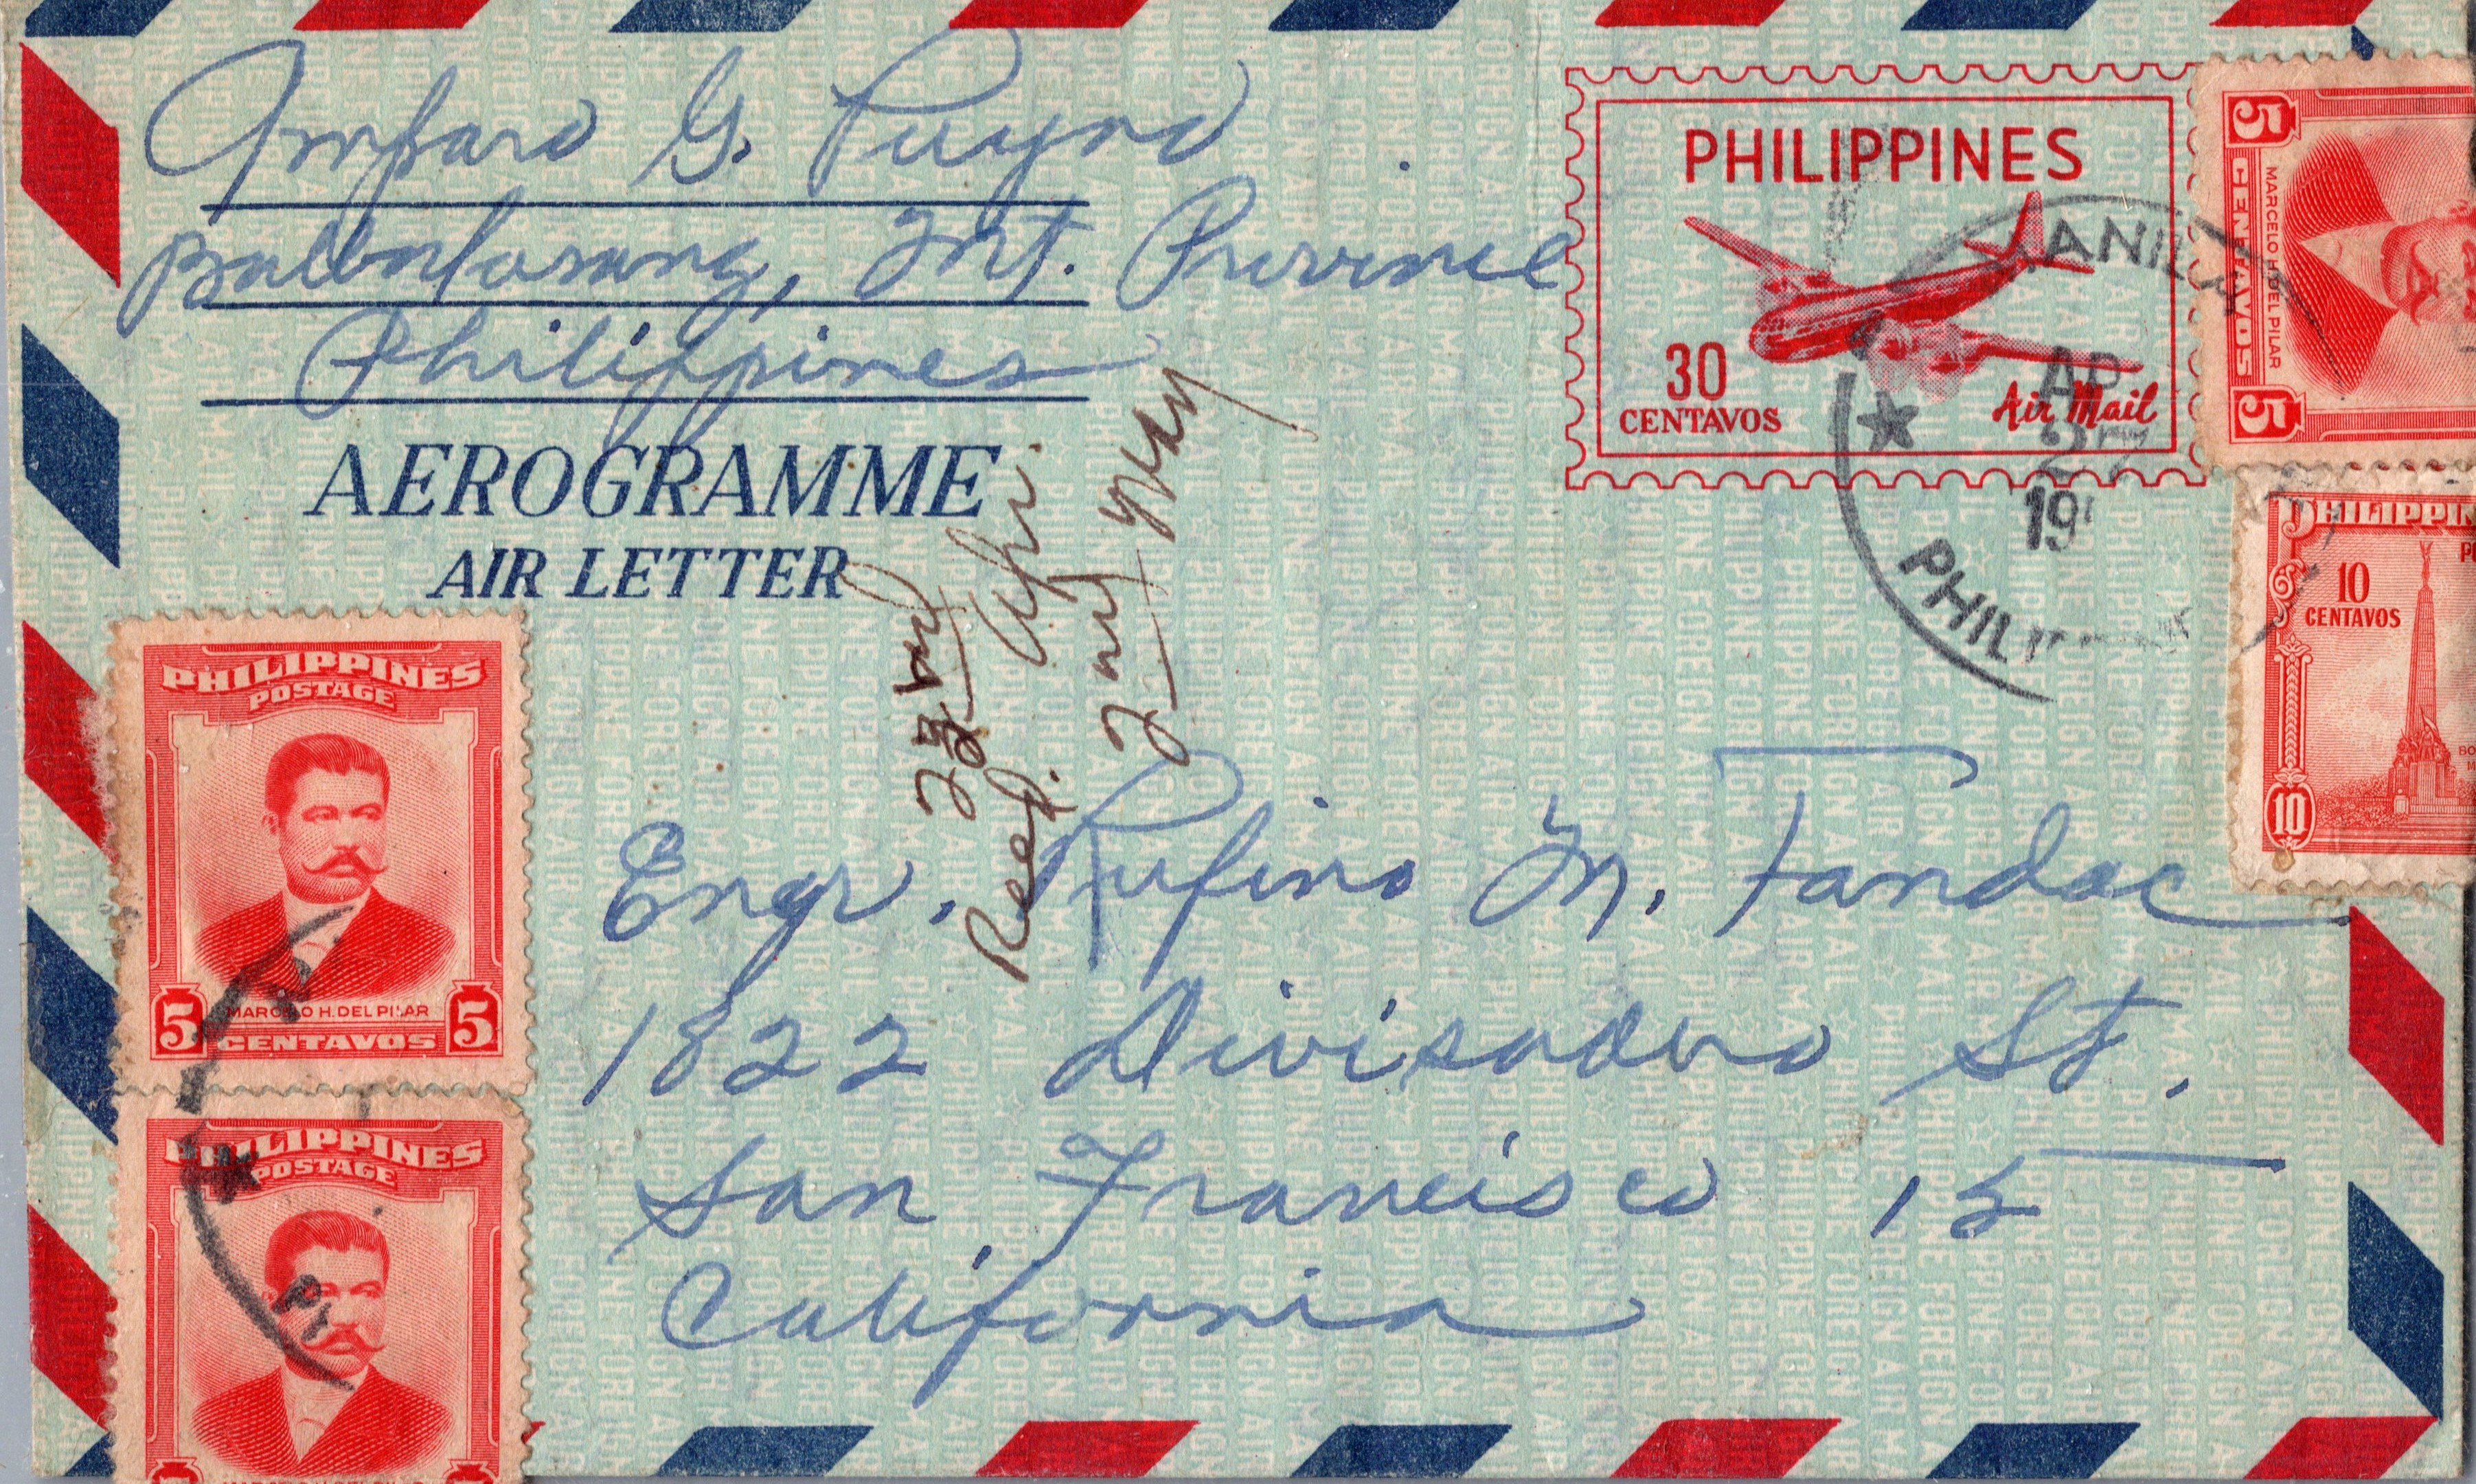 Amparo G. Puyno
Balbalasang, Mt. Province
Philippines
AEROGRAMME
AIR LETTER
PHILIPPINES
30
CENTAVOS
Air Mail
MANILA
AP
27
19
PHIL
5
CENTAVOS
MARCELO H. DEL PILAR
5
PHILIPPIN
10
CENTAVOS
10
Recd.
PHILIPPINES
POSTAGE
5
MARCELO H. DEL PILAR
CENTAVOS
5
PHILIPPINES
POSTAGE
Engr. Rufino M. Tandoc
1822 Divisadero St.
San Francisco 15
California